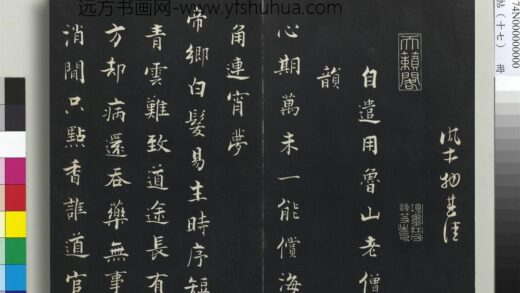 远方书画网-www.yfshuhua.com
74N000000000
帖（十七） 册
天籟閣
自遣用魯山老僧
韻
心期萬未一能償海
角連宵夢
帝鄉白髮易生時序短
青雲難致道途長有
方却病還吞藥無事
消閒只點香誰道官